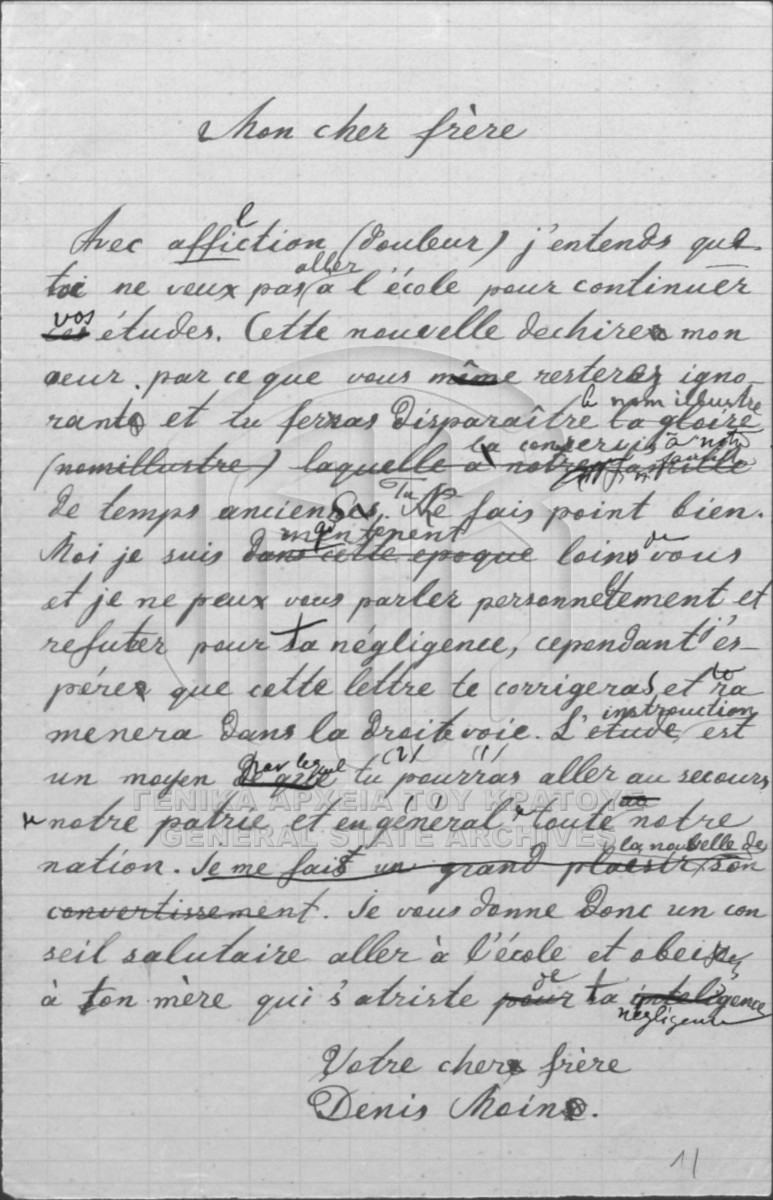 Mon cher frère
l
Avec affiction (douleur) j'entends que
aller
toi ne veux pas a l'école pour continuer
vos
ces études. Cette nouvelle dechire mon
oeur. par ce que vous même resterez igno-
le nom illustre
rant et tu feras disparaître la gloire
la conservé à notre
(nom illustre) laquelle a notre famille
Tu
de temps anciennes. Ne fais point bien.
maintenent
Moi je suis dans cette epoque loin de vous
et je ne peux vous parler personnellement et
refuter pour ta négligence, cependant j'es-
père que cette lettre te corrigera, et te ra
instruction
menera dans la droite voie. L'étude, est
par lequel (2) (1)
un moyen tu pourras aller au secours
notre patrie et en général toute notre
la nouvelle de
nation. Je me fais un grand plaesir son
convertissement. Je vous donne Donc un con
seil salutaire aller à l'école et obeisez
de
à ton mère qui s'atriste pour ta inteligence
négligence
Votre cher frère
Denis Moin.
11
ΓΕΝΙΚΑ ΑΡΧΕΙΑ ΤΟΥ ΚΡΑΤΟΥΣ
GENERAL STATE ARCHIVES